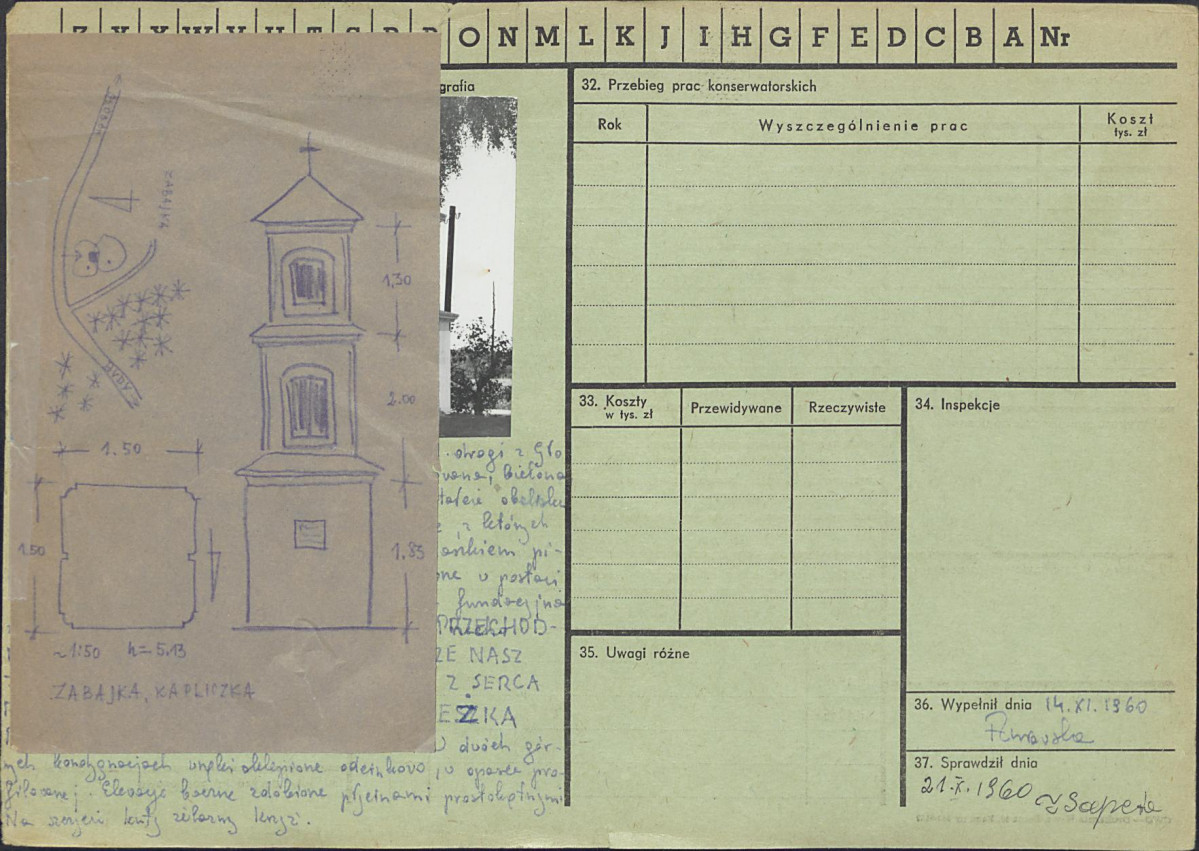 O N M L K J I H G F E D C B A Nr
grafia
32. Przebieg prac konserwatorskich
Rok
Wyszczególnienie prac
Koszt
tys. zł
33. Koszty
w tys. zł
Przewidywane
Rzeczywiste
34. Inspekcje
35. Uwagi różne
36. Wypełnił dnia 14.XI.1960
37. Sprawdził dnia
21.X.1960
ZABAJKA
BUDY
1,30
2.00
1.50
1.50
1.85
~1:50 h=5.13
ZABAJKA, KAPLICZKA
drogi z Gło
z których
w postaci
fundacyjna
PRZECHOD-
ZE NASZ
Z SERCA
W dwóch gór-
nych kondygnacjach wnęki sklepione odcinkowo, w oprawie pro-
filowanej. Elewacje boczne zdobione płycinami prostokątnymi
Na szczycie kuty żelazny krzyż.